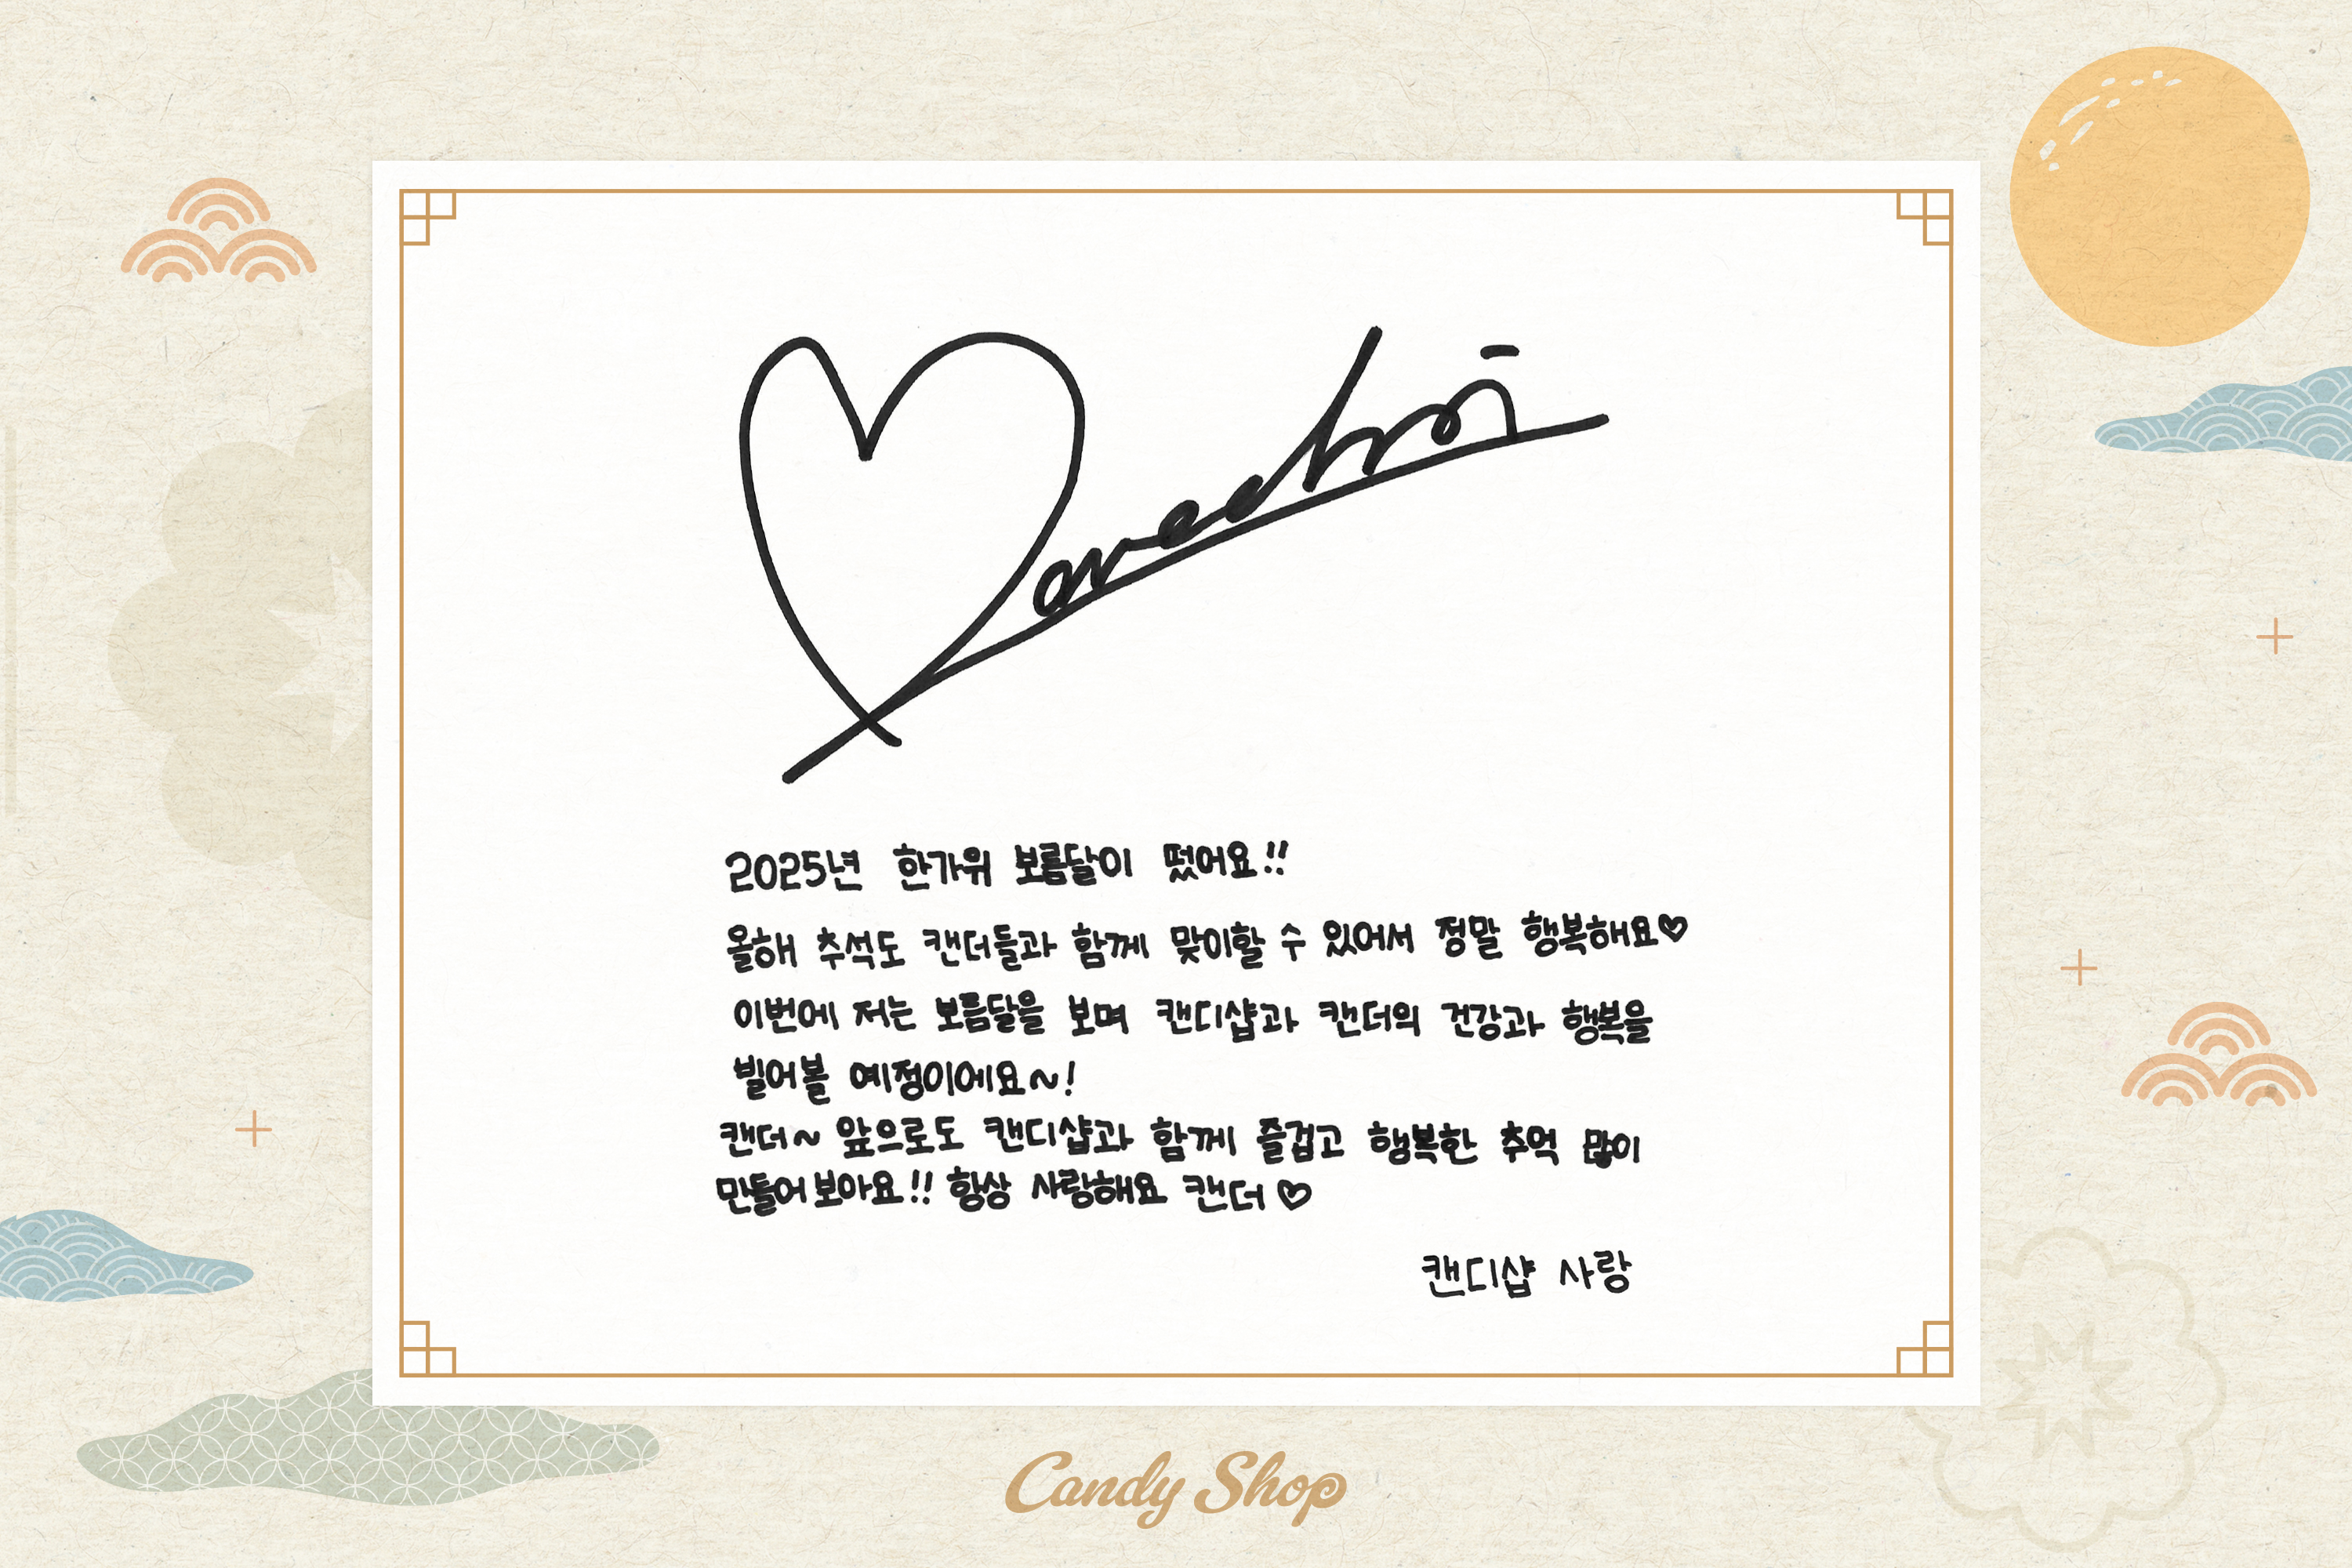 2025년 한가위 보름달이 떴어요!!
올해 추석도 캔더들과 함께 맞이할 수 있어서 정말 행복해요♡
이번에 저는 보름달을 보며 캔디샵과 캔더의 건강과 행복을
빌어볼 예정이에요~!
캔더~ 앞으로도 캔디샵과 함께 즐겁고 행복한 추억 많이
만들어보아요!! 항상 사랑해요 캔더♡
캔디샵 사랑
Candy Shop